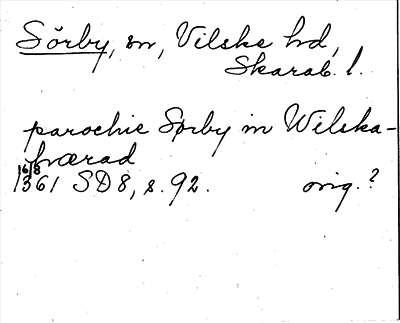 Sörby, sn, Vilske hd,
Skarab. l.
parochie Sørby in Wilska-
hærad
16/8
1361 SD 8, s. 92. orig.?